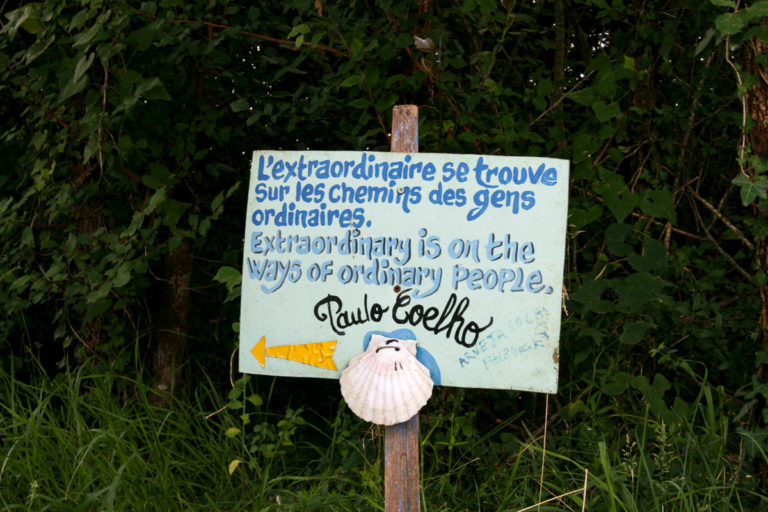 L'extraordinaire se trouve
sur les chemins des gens
ordinaires.
Extraordinary is on the
ways of ordinary people.
Paulo Coelho